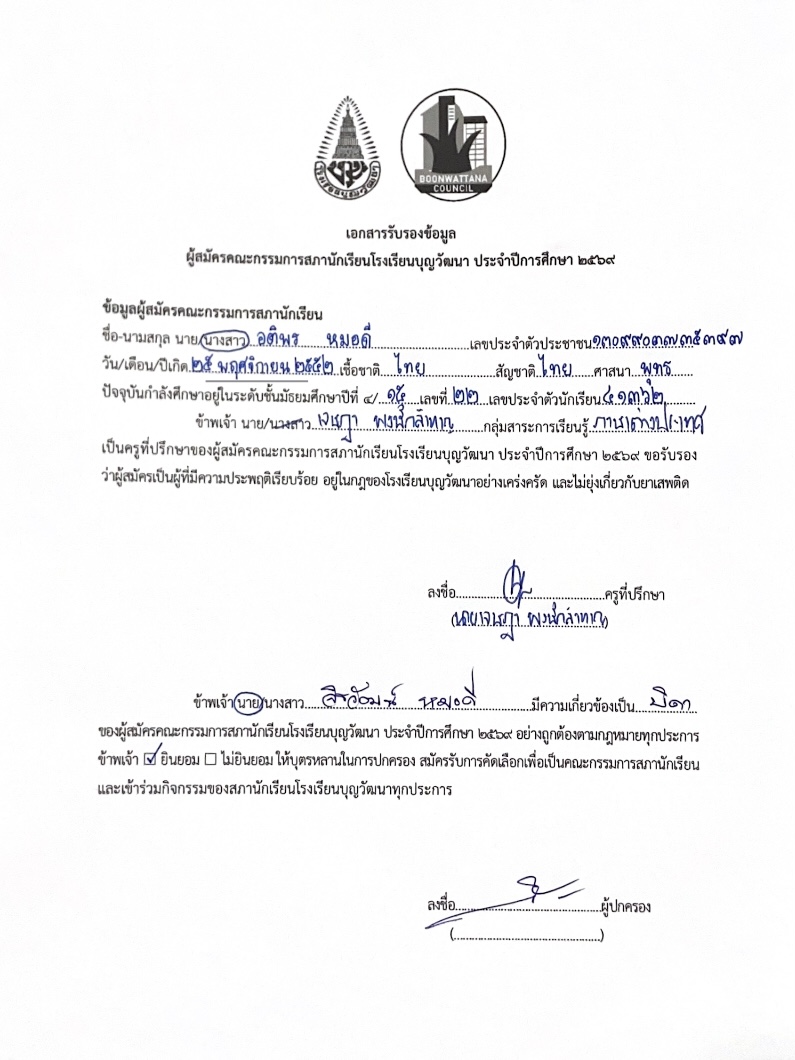 BOONWATTANA
COUNCIL
เอกสารรับรองข้อมูล
ผู้สมัครคณะกรรมการสภานักเรียนโรงเรียนบุญวัฒนา ประจำปีการศึกษา ๒๕๖๙
ข้อมูลผู้สมัครคณะกรรมการสภานักเรียน
ชื่อ-นามสกุล นาย/นางสาว อติพร หมอดี เลขประจำตัวประชาชน ๑๓๐๙๙๐๓๗๓๕๓๙๗
วัน/เดือน/ปีเกิด ๒๕ พฤศจิกายน ๒๕๕๒ เชื้อชาติ ไทย สัญชาติ ไทย ศาสนา พุทธ
ปัจจุบันกำลังศึกษาอยู่ในระดับชั้นมัธยมศึกษาปีที่ ๔/ ๑๕ เลขที่ ๒๒ เลขประจำตัวนักเรียน ๔๑๓๖๒
ข้าพเจ้า นาย/นางสาว เจษฎา พงษ์กล้าหาญ กลุ่มสาระการเรียนรู้ ภาษาต่างประเทศ
เป็นครูที่ปรึกษาของผู้สมัครคณะกรรมการสภานักเรียนโรงเรียนบุญวัฒนา ประจำปีการศึกษา ๒๕๖๙ ขอรับรอง
ว่าผู้สมัครเป็นผู้ที่มีความประพฤติเรียบร้อย อยู่ในกฎของโรงเรียนบุญวัฒนาอย่างเคร่งครัด และไม่ยุ่งเกี่ยวกับยาเสพติด
ลงชื่อ ครูที่ปรึกษา
(นายเจษฎา พงษ์กล้าหาญ)
ข้าพเจ้า นาย/นางสาว หมอดี มีความเกี่ยวข้องเป็น บิดา
ของผู้สมัครคณะกรรมการสภานักเรียนโรงเรียนบุญวัฒนา ประจำปีการศึกษา ๒๕๖๙ อย่างถูกต้องตามกฎหมายทุกประการ
ข้าพเจ้า ☑ ยินยอม ☐ ไม่ยินยอม ให้บุตรหลานในการปกครอง สมัครรับการคัดเลือกเพื่อเป็นคณะกรรมการสภานักเรียน
และเข้าร่วมกิจกรรมของสภานักเรียนโรงเรียนบุญวัฒนาทุกประการ
ลงชื่อ ผู้ปกครอง
(....................)